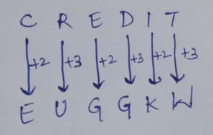 C R E D I T
+2 +3 +2 +3 +2 +3
E U G G K W